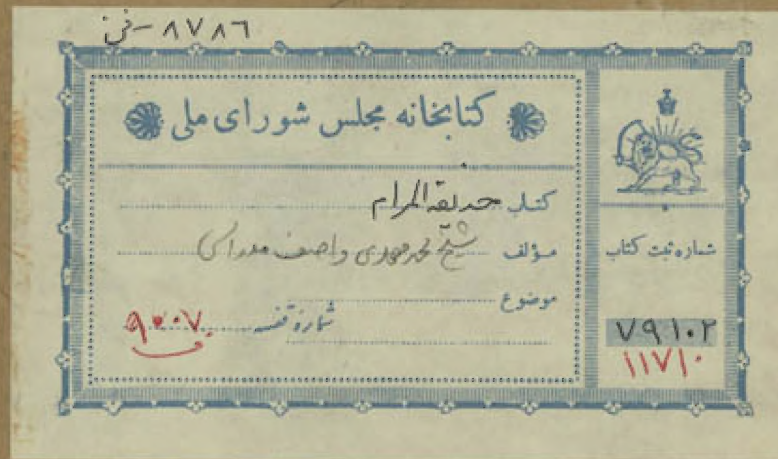 ۸۷۸۶ - فی
کتابخانه مجلس شورای ملی
کتاب حدیقة المرام
مؤلف شیخ محمد مهدی واصف مدراسی
موضوع
شماره قفسه ۹۰۰۷
شماره ثبت کتاب
۷۹۱۰۲
۱۱۷۱۰